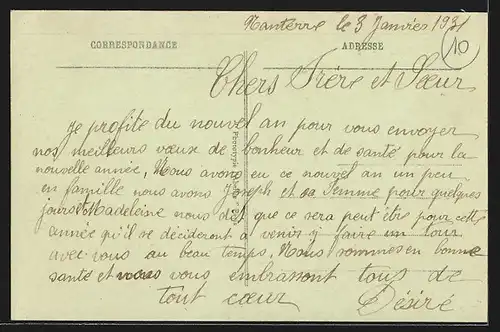 Nanterre le 3 Janvier 1931
10
CORRESPONDANCE
ADRESSE
Chers Frère et Sœur
Je profite du nouvel an pour vous envoyer
nos meilleurs vœux de bonheur et de santé pour la
nouvelle année, Nous avons eu ce nouvel an un peu
en famille nous avons Joseph et sa Femme pour quelques
jours Madeleine nous dit que ce sera peut être pour cette
année qu'il se décideront à venir y faire un tour
avec vous au beau temps, Nous sommes en bonne
santé et vous embrassont tous de
tout cœur Désiré
Phototypie